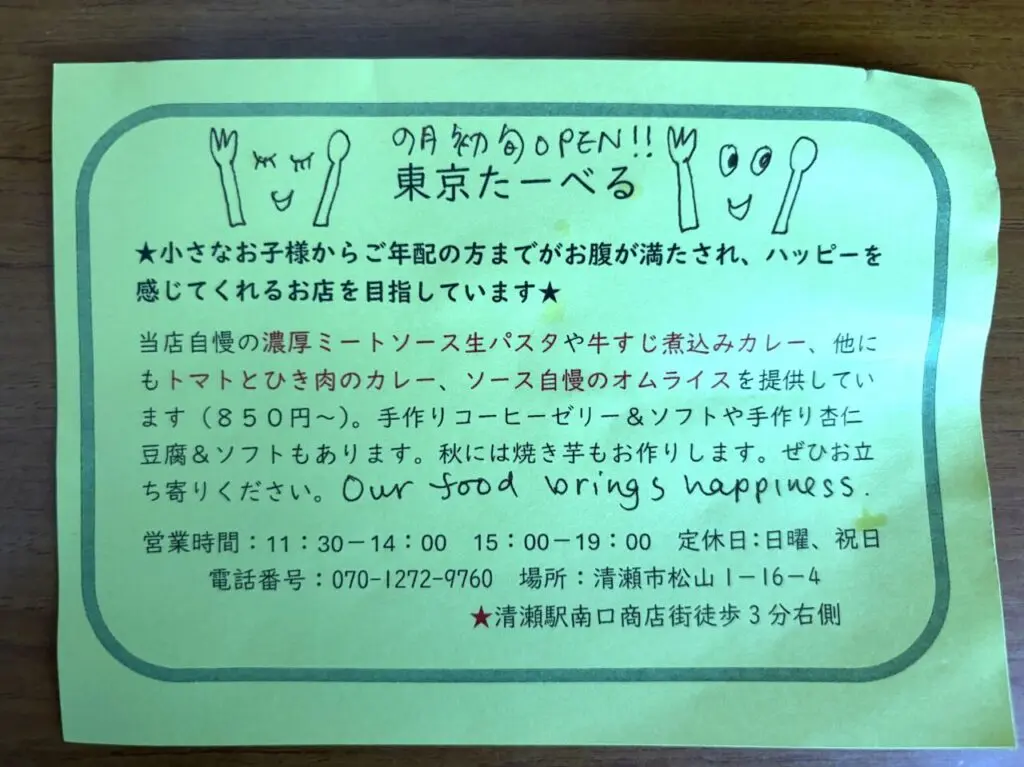 月初旬OPEN!!
東京たーべる
★小さなお子様からご年配の方までがお腹が満たされ、ハッピーを
感じてくれるお店を目指しています★
当店自慢の濃厚ミートソース生パスタや牛すじ煮込みカレー、他に
もトマトとひき肉のカレー、ソース自慢のオムライスを提供してい
ます（８５０円～）。手作りコーヒーゼリー＆ソフトや手作り杏仁
豆腐＆ソフトもあります。秋には焼き芋もお作りします。ぜひお立
ち寄りください。Our food brings happiness.
営業時間：11：30－14：00　15：00－19：00　定休日：日曜、祝日
電話番号：070-1272-9760　場所：清瀬市松山１－16－4
★清瀬駅南口商店街徒歩３分右側